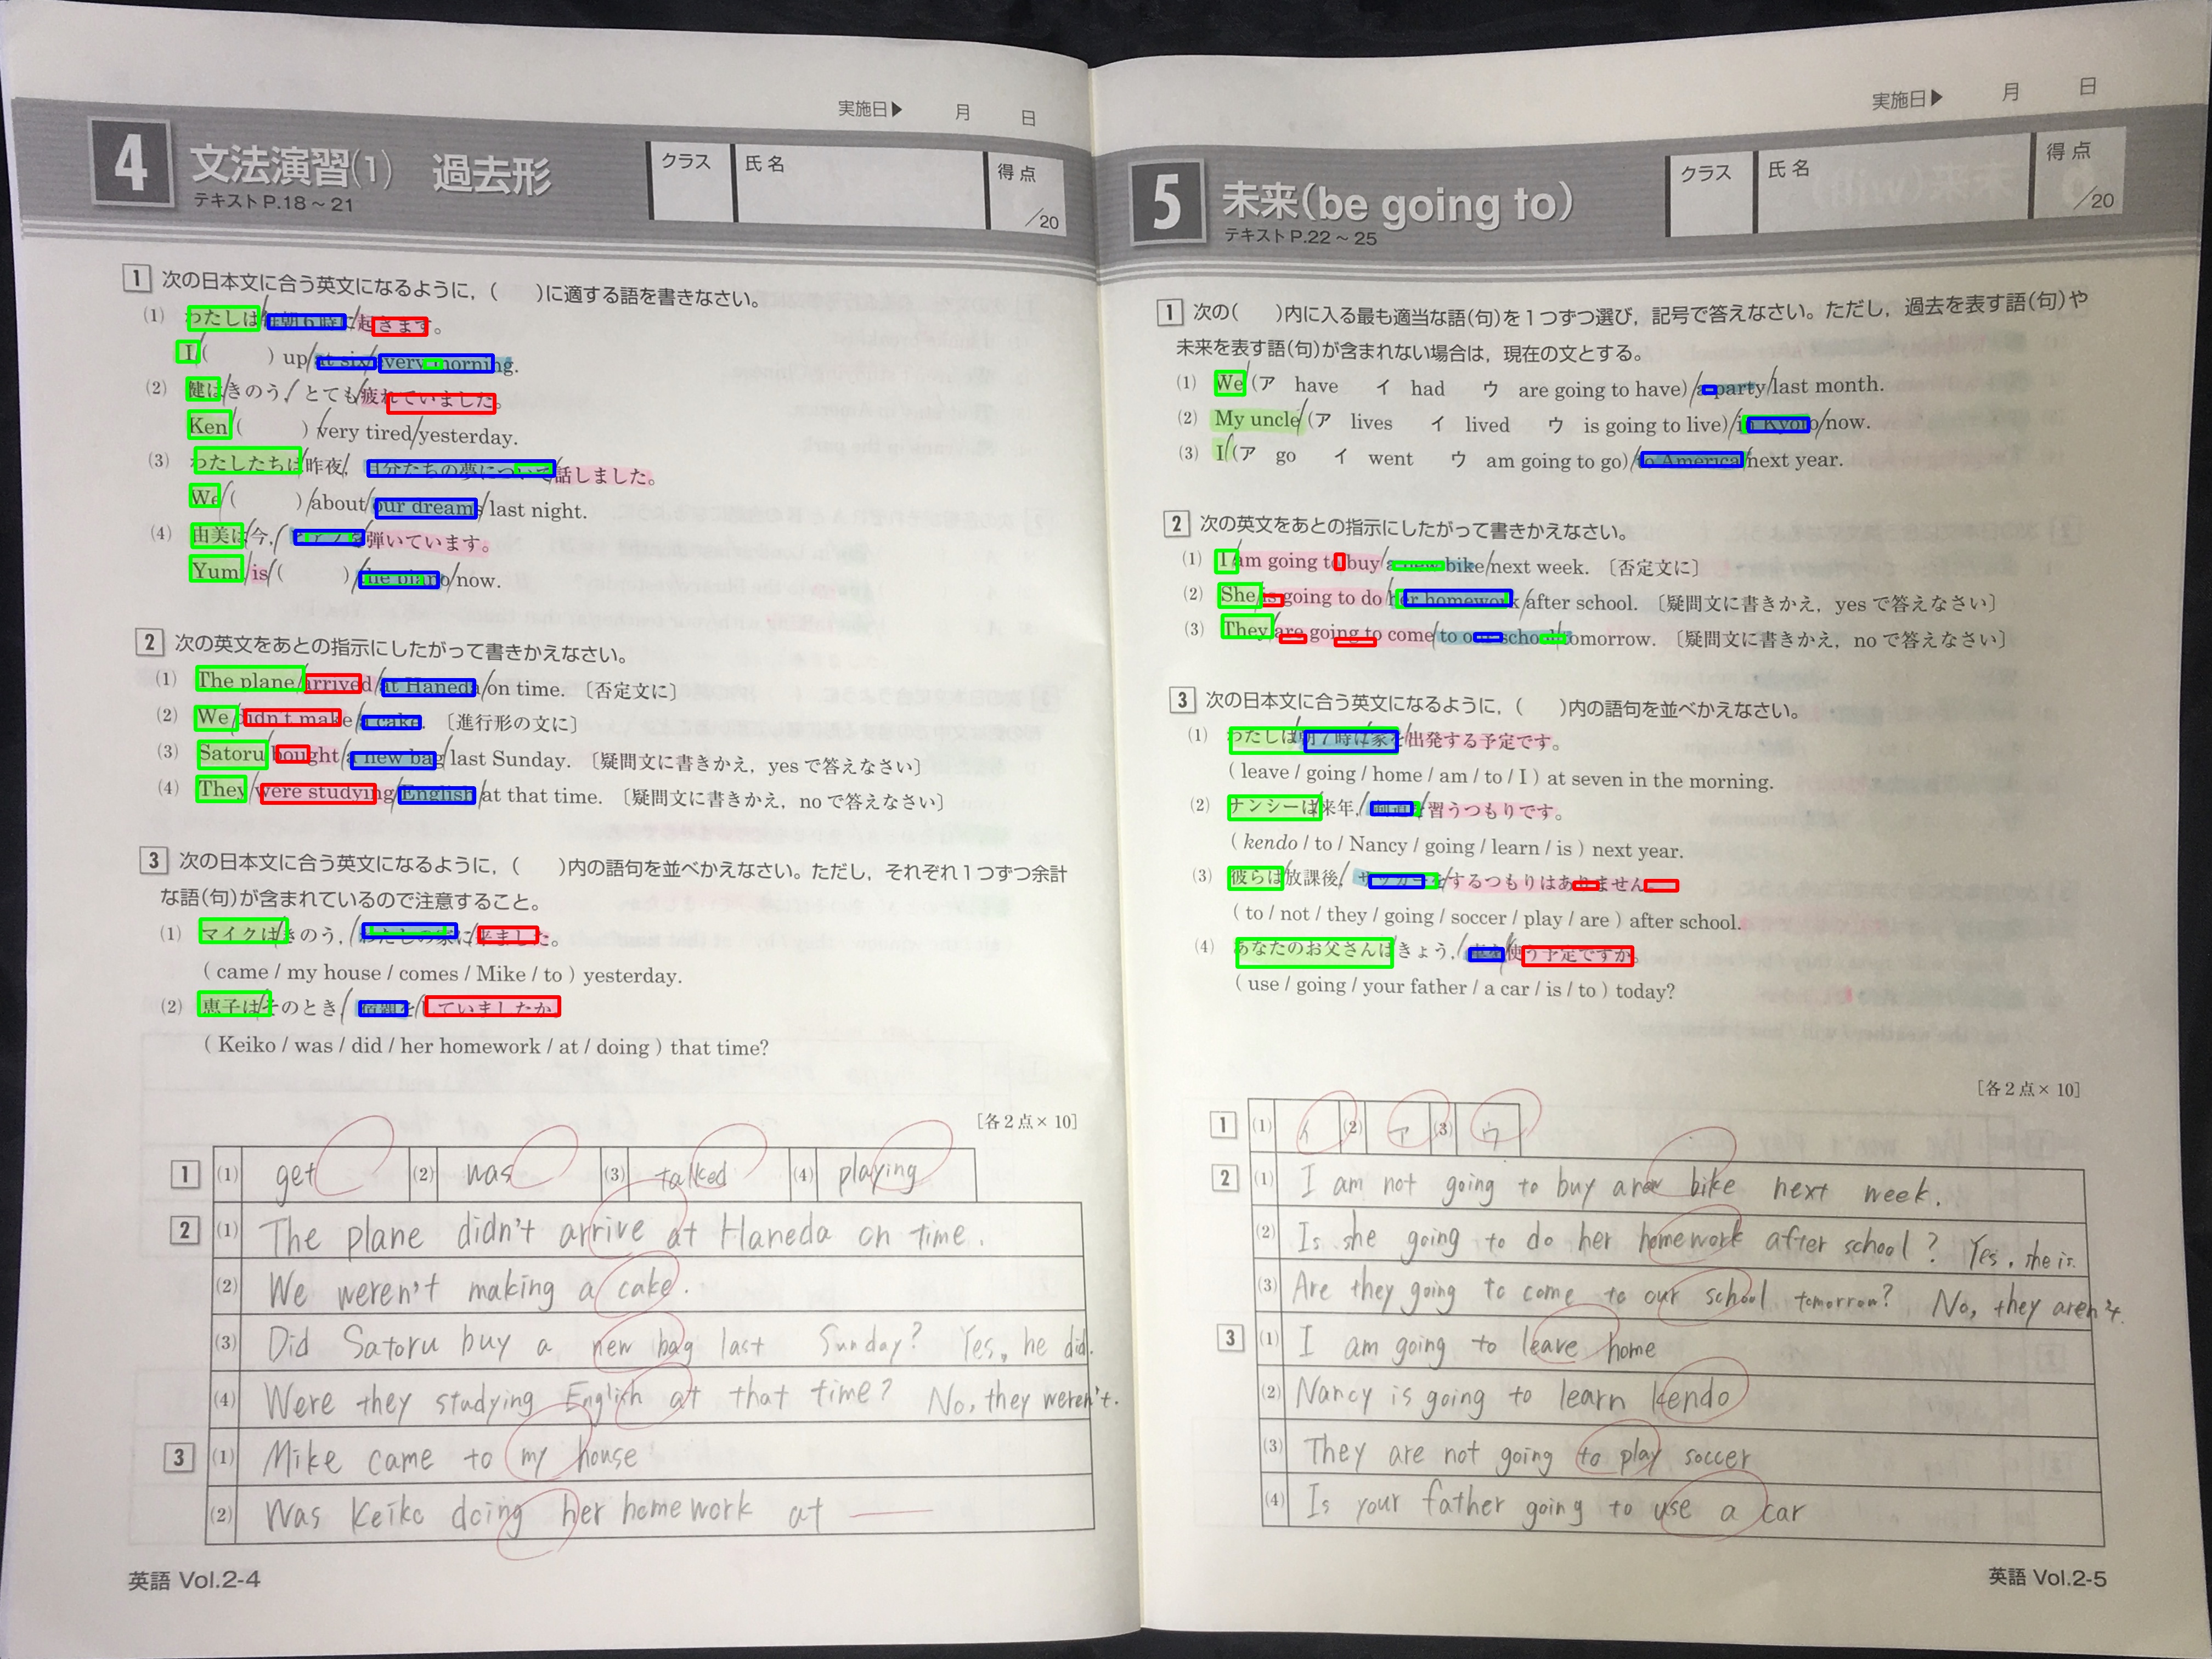 実施日▶ 月 日
4 文法演習(1) 過去形
テキストP.18～21
クラス 氏名 得点 /20
1 次の日本文に合う英文になるように，( )に適する語を書きなさい。
(1) わたしは/毎朝6時に/起きます。
I/( ) up/at six/every morning.
(2) 健は/きのう，/とても/疲れていました。
Ken/( )/very tired/yesterday.
(3) わたしたちは/昨夜，/自分たちの夢について/話しました。
We/( )/about/our dreams/last night.
(4) 由美は/今，/ピアノを/弾いています。
Yumi/is/( )/the piano/now.
2 次の英文をあとの指示にしたがって書きかえなさい。
(1) The plane/arrived/at Haneda/on time. 〔否定文に〕
(2) We/didn't make/a cake. 〔進行形の文に〕
(3) Satoru/bought/a new bag/last Sunday. 〔疑問文に書きかえ，yesで答えなさい〕
(4) They/were studying/English/at that time. 〔疑問文に書きかえ，noで答えなさい〕
3 次の日本文に合う英文になるように，( )内の語句を並べかえなさい。ただし，それぞれ1つずつ余計
な語(句)が含まれているので注意すること。
(1) マイクは/きのう，/わたしの家に/来ました。
( came / my house / comes / Mike / to ) yesterday.
(2) 恵子は/そのとき/宿題を/していましたか。
( Keiko / was / did / her homework / at / doing ) that time?
［各2点×10］
1 (1) get (2) was (3) talked (4) playing
2 (1) The plane didn't arrive at Haneda on time.
(2) We weren't making a cake.
(3) Did Satoru buy a new bag last Sunday? Yes, he did.
(4) Were they studying English at that time? No, they weren't.
3 (1) Mike came to my house
(2) Was Keiko doing her homework at
英語 Vol.2-4
実施日▶ 月 日
5 未来(be going to)
テキストP.22～25
クラス 氏名 得点 /20
1 次の( )内に入る最も適当な語(句)を1つずつ選び，記号で答えなさい。ただし，過去を表す語(句)や
未来を表す語(句)が含まれない場合は，現在の文とする。
(1) We (ア have イ had ウ are going to have)/a party/last month.
(2) My uncle/(ア lives イ lived ウ is going to live)/in Kyoto/now.
(3) I/(ア go イ went ウ am going to go)/to America/next year.
2 次の英文をあとの指示にしたがって書きかえなさい。
(1) I/am going to buy/a new bike/next week. 〔否定文に〕
(2) She/is going to do/her homework/after school. 〔疑問文に書きかえ，yesで答えなさい〕
(3) They/are going to come/to our school/tomorrow. 〔疑問文に書きかえ，noで答えなさい〕
3 次の日本文に合う英文になるように，( )内の語句を並べかえなさい。
(1) わたしは/朝7時に/家を/出発する予定です。
( leave / going / home / am / to / I ) at seven in the morning.
(2) ナンシーは/来年，/剣道を/習うつもりです。
( kendo / to / Nancy / going / learn / is ) next year.
(3) 彼らは/放課後，/サッカーを/するつもりはありません。
( to / not / they / going / soccer / play / are ) after school.
(4) あなたのお父さんは/きょう，/車を/使う予定ですか。
( use / going / your father / a car / is / to ) today?
［各2点×10］
1 (1) イ (2) ア (3) ウ
2 (1) I am not going to buy a new bike next week.
(2) Is she going to do her homework after school? Yes, she is.
(3) Are they going to come to our school tomorrow? No, they aren't.
3 (1) I am going to leave home
(2) Nancy is going to learn kendo
(3) They are not going to play soccer
(4) Is your father going to use a car
英語 Vol.2-5